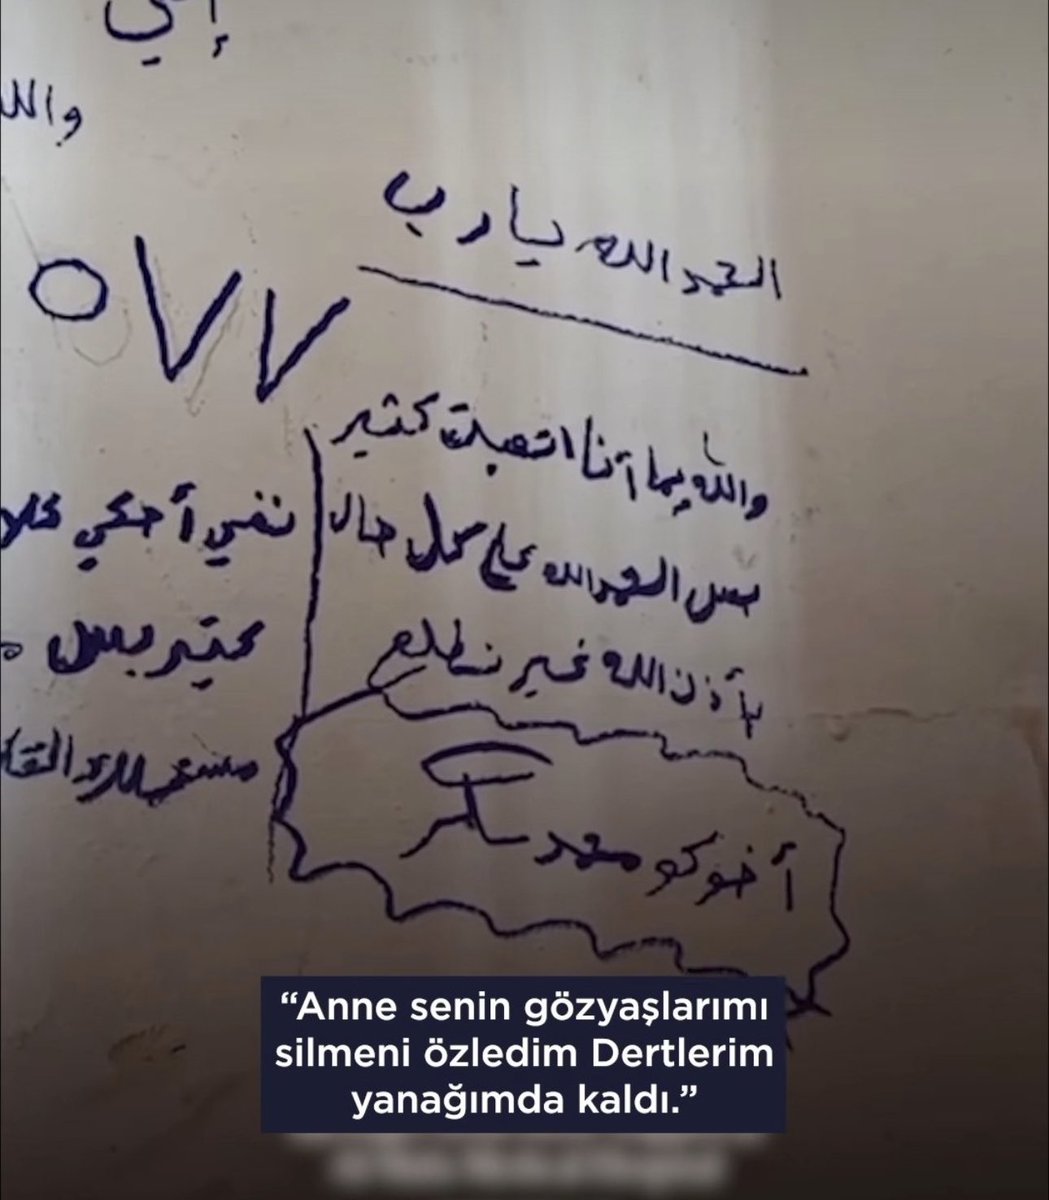 الحمد الله يا رب
٥٧٧
والله يما أنا اتعبت كثير
بس الحمدالله علي كل حال
بأذن الله غير نطلع
نفسي أحكي
كتير بس
أخوكو محمد
“Anne senin gözyaşlarımı
silmeni özledim Dertlerim
yanağımda kaldı.”